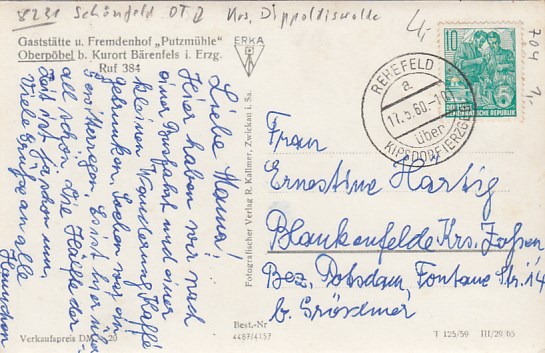 8231 Schönfeld OT 2 Krs. Dippoldiswalde
Gaststätte u. Fremdenhof „Putzmühle"
Oberpöbel b. Kurort Bärenfels i. Erzg.
Ruf 384
ERKA
Liebe Mama!
Hier haben wir nach
einer Busfahrt und einer
kleinen Wanderung Kaffe
getrunken. Suchen wir ein
Es ist hier
all schön. Die Hälfte der
Zeit ist ja schon um.
Viele Grüße an alle
Fotografischer Verlag R. Kallmer, Zwickau i. Sa.
REHEFELD
a
17.5.60.-10
über
KIPSDORF (ERZGEB)
10
DEUTSCHE DEMOKRATISCHE REPUBLIK
704
Frau
Ernestine Hartig
Blankenfelde Krs. Zossen
Bez. Potsdam, Fontane Str. 14
b.
Verkaufspreis DM -,20
Best.-Nr
4487/4157
T 125/59 III/29/65